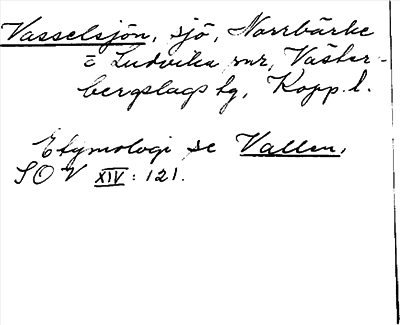 Vasselsjön, sjö, Norrbärke
o Ludvika snr, Väster-
bergslags tg, Kopp. l.
Etymologi se Vallen,
SOV XIV: 121.